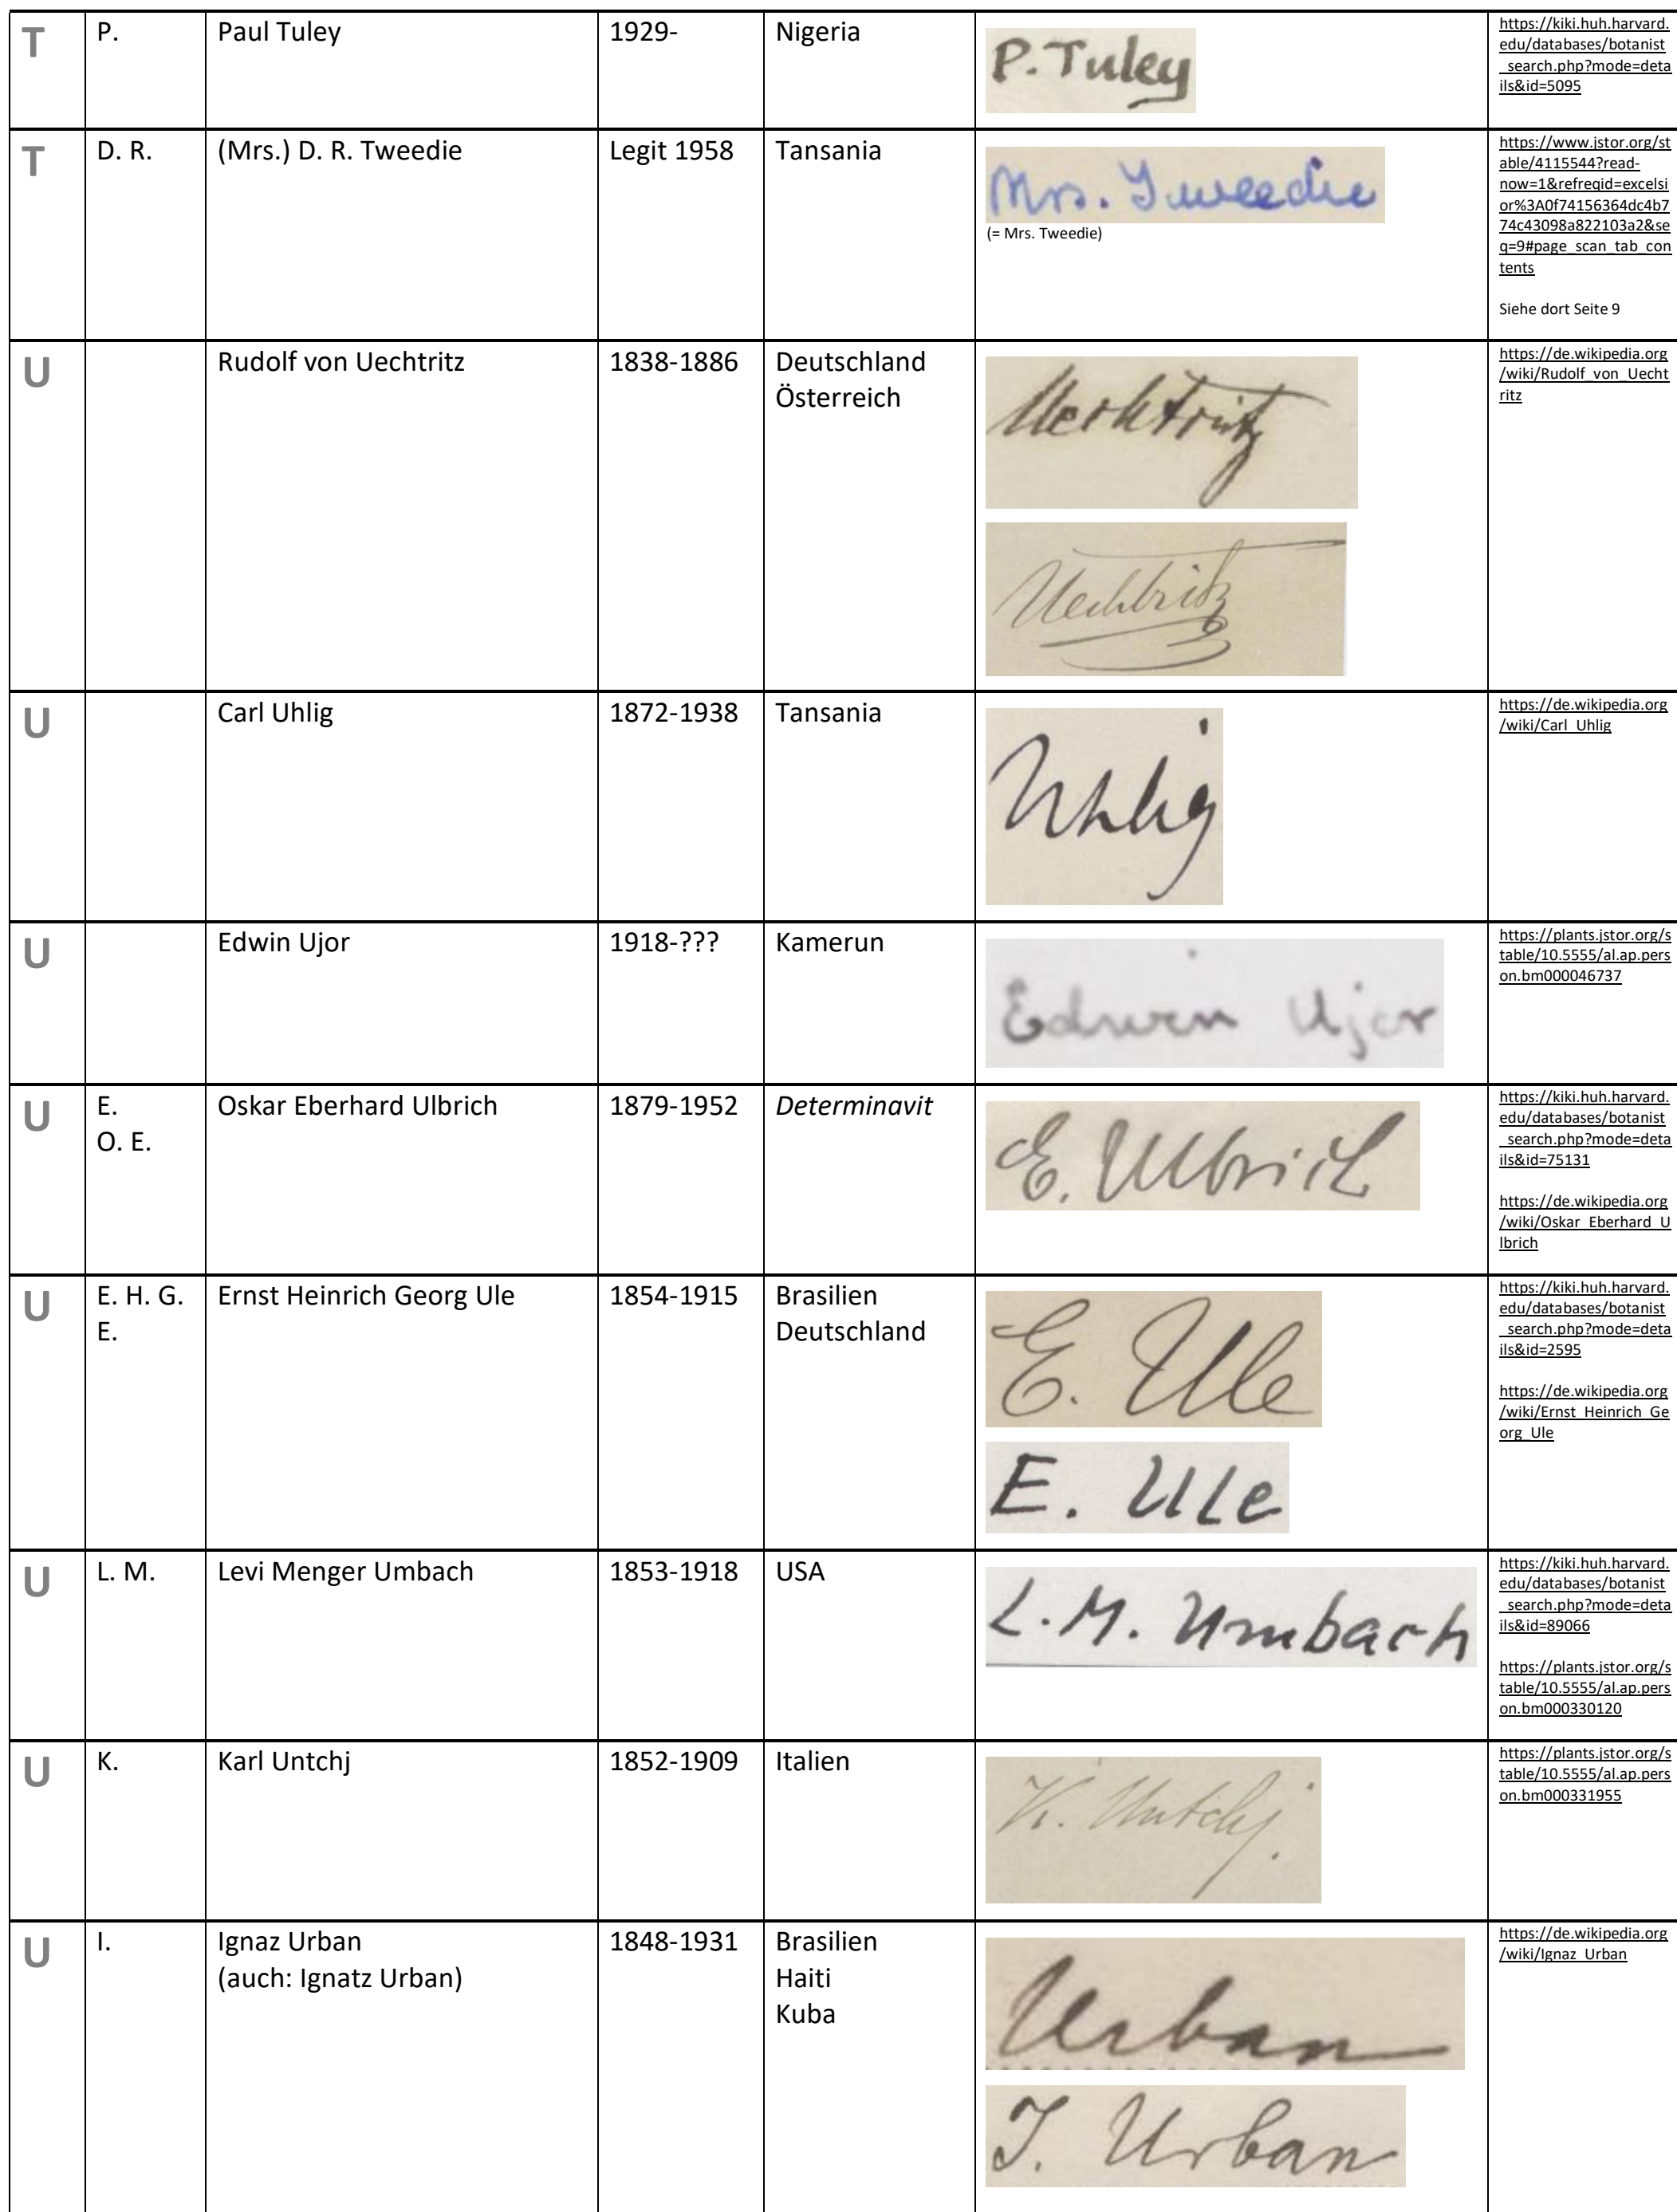 T
P.
Paul Tuley
1929-
Nigeria
P. Tuley
https://kiki.huh.harvard.
edu/databases/botanist
_search.php?mode=deta
ils&id=5095
T
D. R.
(Mrs.) D. R. Tweedie
Legit 1958
Tansania
Mrs. Tweedie
(= Mrs. Tweedie)
https://www.jstor.org/st
able/4115544?read-
now=1&refreqid=excelsi
or%3A0f74156364dc4b7
74c43098a822103a2&se
q=9#page_scan_tab_con
tents
Siehe dort Seite 9
U
Rudolf von Uechtritz
1838-1886
Deutschland
Österreich
Uechtritz
Uechtritz
https://de.wikipedia.org
/wiki/Rudolf_von_Uecht
ritz
U
Carl Uhlig
1872-1938
Tansania
Uhlig
https://de.wikipedia.org
/wiki/Carl_Uhlig
U
Edwin Ujor
1918-???
Kamerun
Edwin Ujor
https://plants.jstor.org/s
table/10.5555/al.ap.pers
on.bm000046737
U
E.
O. E.
Oskar Eberhard Ulbrich
1879-1952
Determinavit
E. Ulbrich
https://kiki.huh.harvard.
edu/databases/botanist
_search.php?mode=deta
ils&id=75131
https://de.wikipedia.org
/wiki/Oskar_Eberhard_U
lbrich
U
E. H. G.
E.
Ernst Heinrich Georg Ule
1854-1915
Brasilien
Deutschland
E. Ule
E. Ule
https://kiki.huh.harvard.
edu/databases/botanist
_search.php?mode=deta
ils&id=2595
https://de.wikipedia.org
/wiki/Ernst_Heinrich_Ge
org_Ule
U
L. M.
Levi Menger Umbach
1853-1918
USA
L. M. Umbach
https://kiki.huh.harvard.
edu/databases/botanist
_search.php?mode=deta
ils&id=89066
https://plants.jstor.org/s
table/10.5555/al.ap.pers
on.bm000330120
U
K.
Karl Untchj
1852-1909
Italien
K. Untchj.
https://plants.jstor.org/s
table/10.5555/al.ap.pers
on.bm000331955
U
I.
Ignaz Urban
(auch: Ignatz Urban)
1848-1931
Brasilien
Haiti
Kuba
Urban
I. Urban
https://de.wikipedia.org
/wiki/Ignaz_Urban